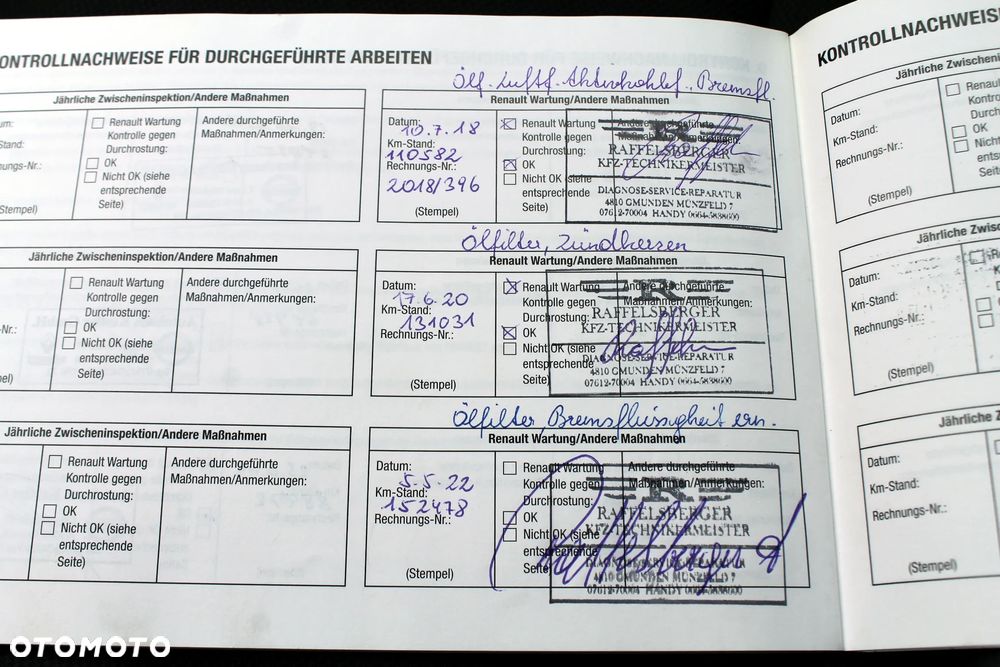 ONTROLLNACHWEISE FÜR DURCHGEFÜHRTE ARBEITEN
Ölf. Luftf. Aktivkohlef., Bremsfl.
Jährliche Zwischeninspektion/Andere Maßnahmen
um:
Stand:
Rechnungs-Nr.:
(Stempel)
Renault Wartung
Kontrolle gegen
Durchrostung:
OK
Nicht OK (siehe
entsprechende
Seite)
Andere durchgeführte
Maßnahmen/Anmerkungen:
Renault Wartung/Andere Maßnahmen
Datum:
10.7.18
Km-Stand:
110582
Rechnungs-Nr.:
2018/396
(Stempel)
Renault Wartung
Kontrolle gegen
Durchrostung:
OK
Nicht OK (siehe
entsprechende
Seite)
Andere durchgeführte
R
RAFFELSBERGER
KFZ-TECHNIKERMEISTER
DIAGNOSE-SERVICE-REPARATUR
4810 GMUNDEN MÜNZFELD 7
07612-70004 HANDY 0664-5838600
Ölfilter, Zündkerzen
Jährliche Zwischeninspektion/Andere Maßnahmen
-Nr.:
pel)
Renault Wartung
Kontrolle gegen
Durchrostung:
OK
Nicht OK (siehe
entsprechende
Seite)
Andere durchgeführte
Maßnahmen/Anmerkungen:
Renault Wartung/Andere Maßnahmen
Datum:
17.6.20
Km-Stand:
131031
Rechnungs-Nr.:
(Stempel)
Renault Wartung
Kontrolle gegen
Durchrostung:
OK
Nicht OK (siehe
entsprechende
Seite)
Andere durchgeführte
Maßnahmen/Anmerkungen:
R
RAFFELSBERGER
KFZ-TECHNIKERMEISTER
DIAGNOSE-SERVICE-REPARATUR
4810 GMUNDEN MÜNZFELD 7
07612-70004 HANDY 0664-5838600
Ölfilter, Bremsflüssigkeit ern.
Jährliche Zwischeninspektion/Andere Maßnahmen
Renault Wartung
Kontrolle gegen
Durchrostung:
OK
Nicht OK (siehe
entsprechende
Seite)
Andere durchgeführte
Maßnahmen/Anmerkungen:
Renault Wartung/Andere Maßnahmen
Datum:
5.5.22
Km-Stand:
152478
Rechnungs-Nr.:
(Stempel)
Renault Wartung
Kontrolle gegen
Durchrostung:
OK
Nicht OK (siehe
entsprechende
Seite)
Andere durchgeführte
Maßnahmen/Anmerkungen:
R
RAFFELSBERGER
KFZ-TECHNIKERMEISTER
DIAGNOSE-SERVICE-REPARATUR
4810 GMUNDEN MÜNZFELD 7
07612-70004 HANDY 0664-5838600
KONTROLLNACHWEISE
Jährliche Zwischenin
Datum:
Km-Stand:
Rechnungs-Nr.:
(Stempel)
OK
Jährliche Zwisc
Datum:
Km-Stand:
Rechnungs-Nr.:
(Stempel)
Jährliche
Datum:
Km-Stand:
Rechnungs-Nr.:
(Stempel)
OTOMOTO